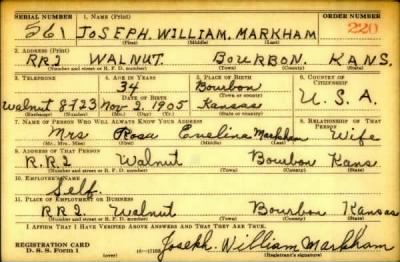 SERIAL NUMBER 1. NAME (Print) ORDER NUMBER
561 JOSEPH. WILLIAM. MARKHAM 220
(First) (Middle) (Last)
2. ADDRESS (Print)
RR2 WALNUT. BOURBON. KANS.
(Number and street or R. F. D. number) (Town) (County) (State)
3. TELEPHONE 4. AGE IN YEARS 5. PLACE OF BIRTH 6. COUNTRY OF CITIZENSHIP
34 Bourbon
DATE OF BIRTH (Town or county)
Walnut 8723 Nov. 2. 1905 Kansas U. S. A.
(Exchange) (Number) (Mo.) (Day) (Yr.) (State or country)
7. NAME OF PERSON WHO WILL ALWAYS KNOW YOUR ADDRESS 8. RELATIONSHIP OF THAT PERSON
Mrs Rosa Evelina Markham Wife
(Mr., Mrs., Miss) (First) (Middle) (Last)
9. ADDRESS OF THAT PERSON
R.R.2 Walnut Bourbon Kans
(Number and street or R. F. D. number) (Town) (County) (State)
10. EMPLOYER'S NAME
Self.
11. PLACE OF EMPLOYMENT OR BUSINESS
RR2 Walnut Bourbon Kansas
(Number and street or R. F. D. number) (Town) (County) (State)
I AFFIRM THAT I HAVE VERIFIED ABOVE ANSWERS AND THAT THEY ARE TRUE.
REGISTRATION CARD
D. S. S. Form 1 Joseph. William Markham
(Registrant's signature)